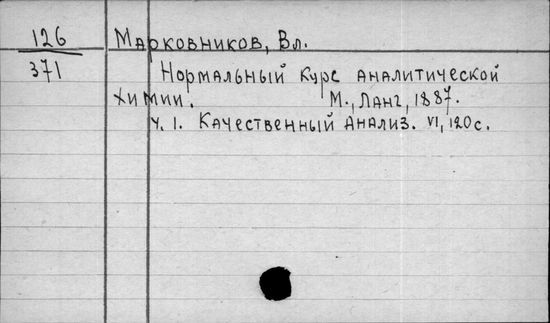 126
371
Марковников, Вл.
Нормальный курс аналитической
химии. М., Ланг, 1887.
ч. 1. Качественный анализ. VI, 120 с.